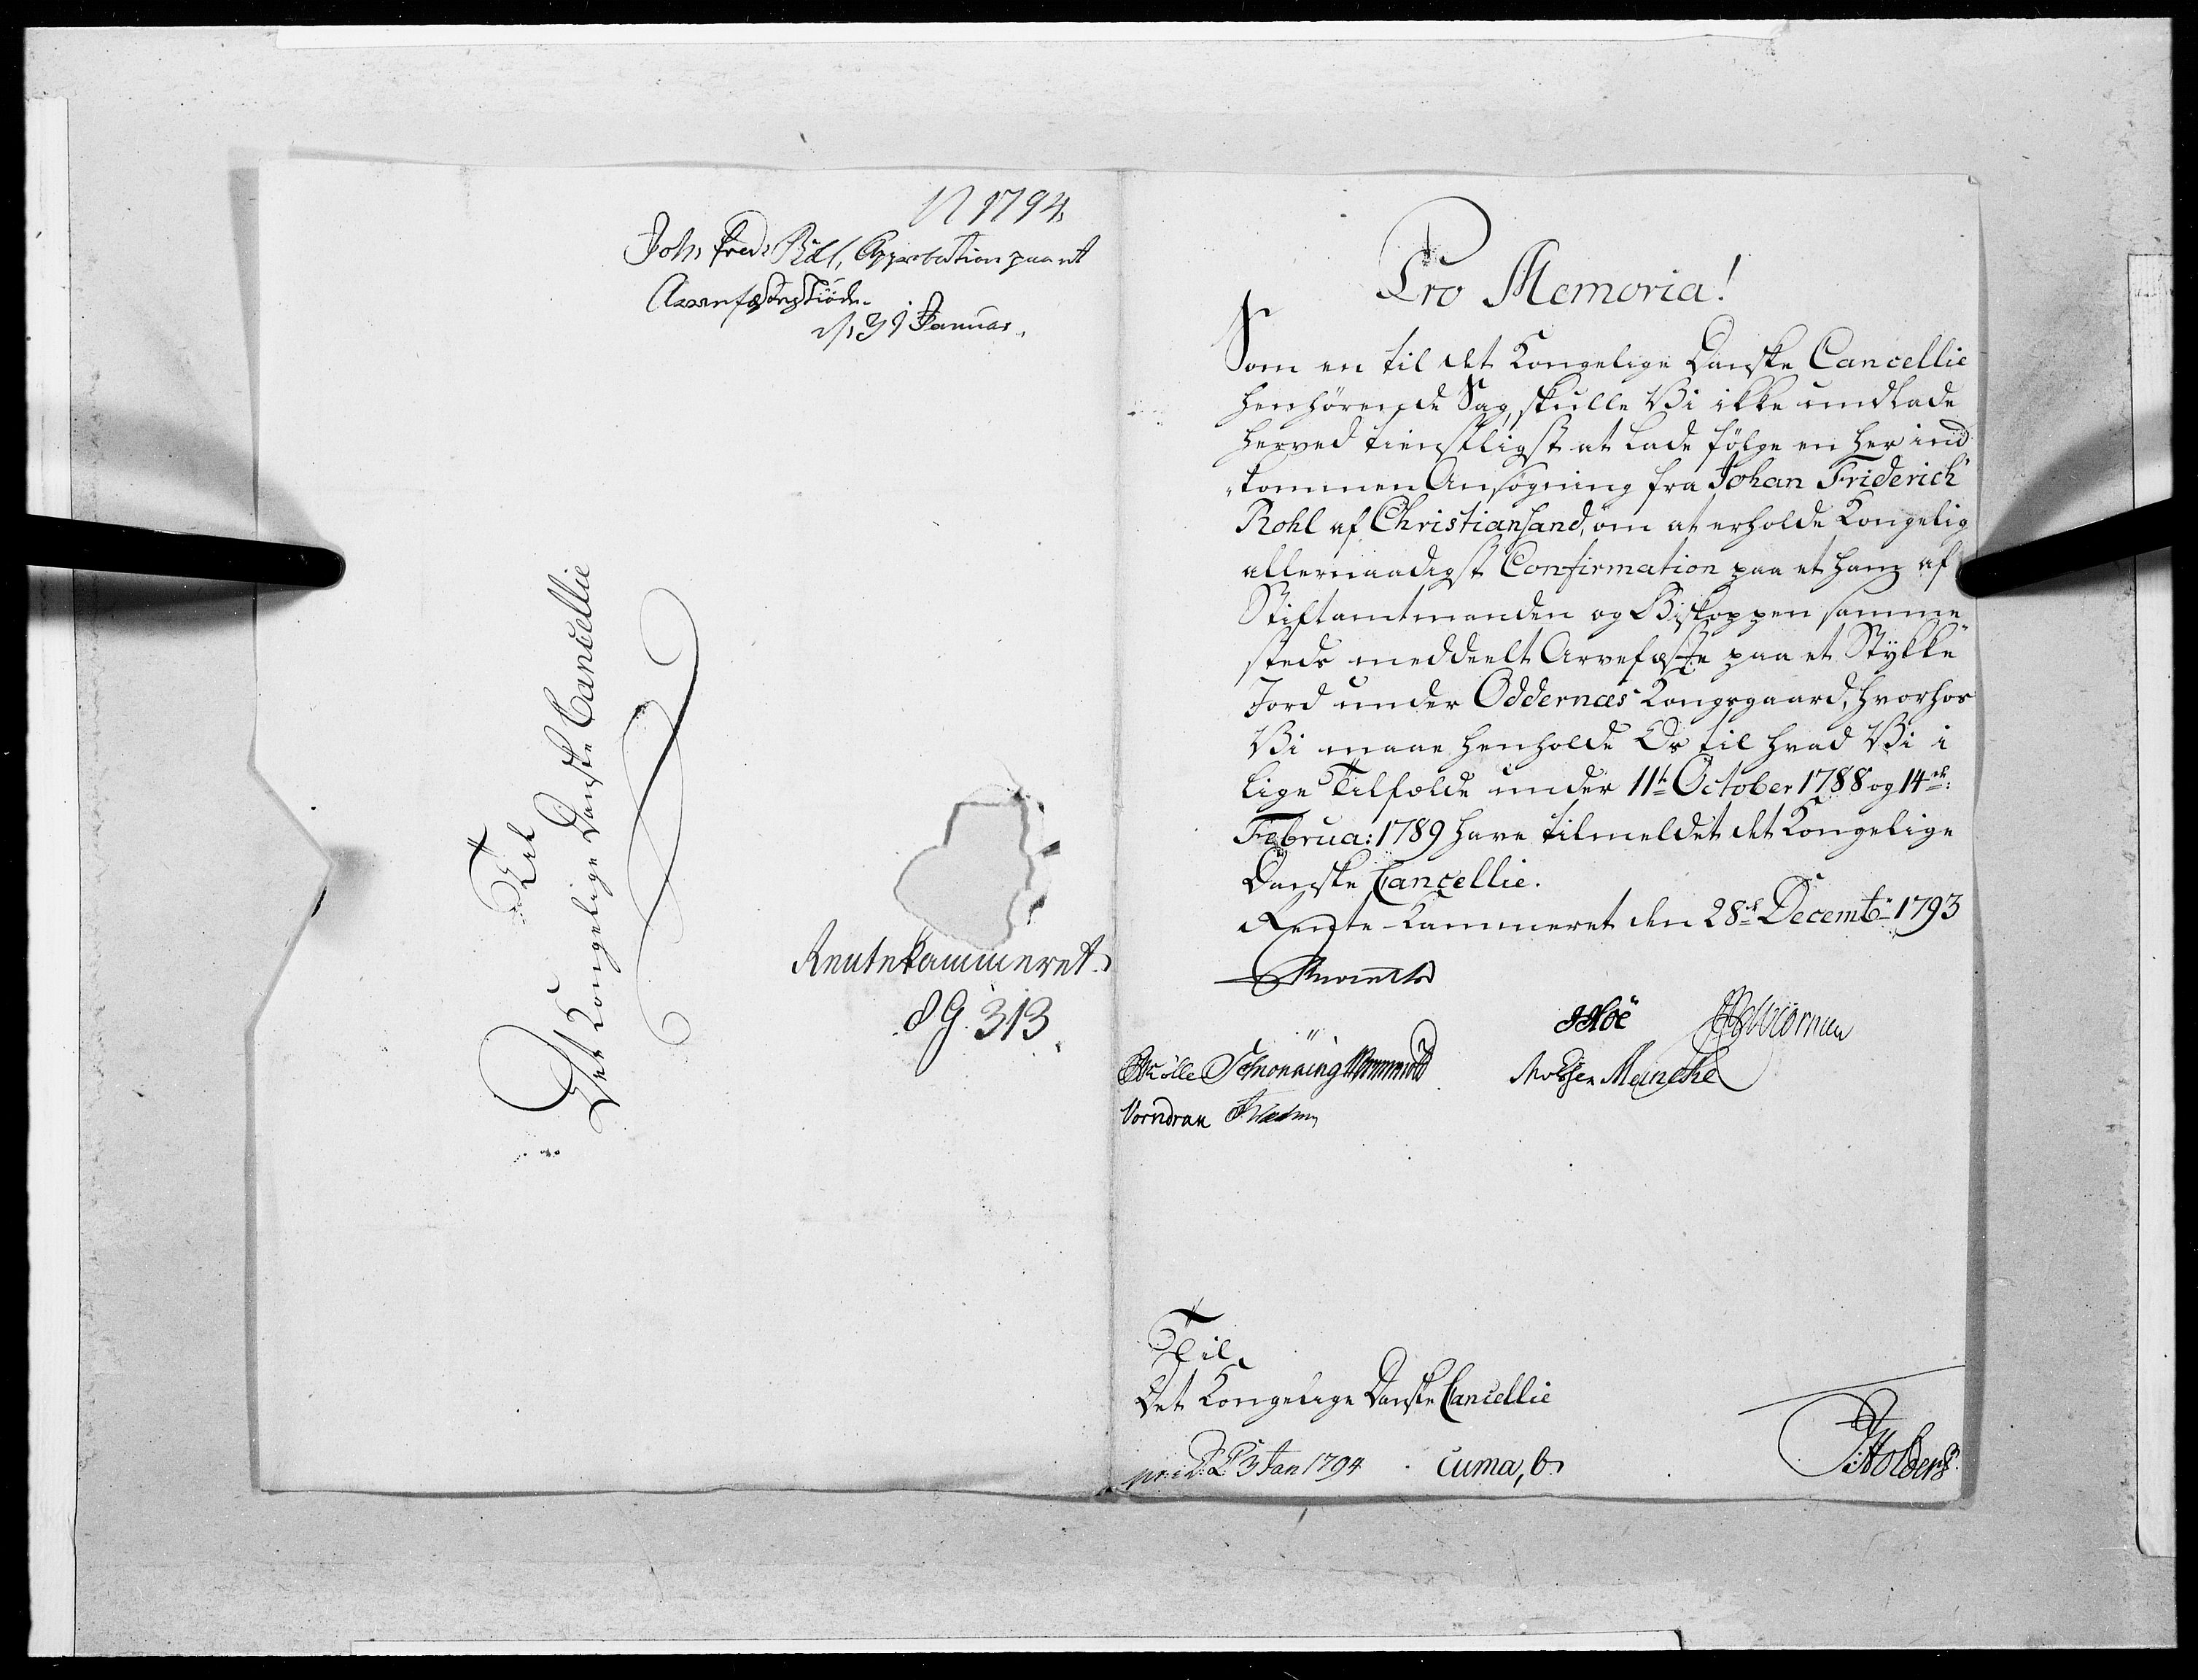 N 1794
Joh. Fred. Röhl, Approbation paa et
Arvefæsteskiøde.
d. 31 Januar.
Til
Det Kongelige Danske Cancellie
Rentekammeret.
313.
Pro Memoria!
Som en til det Kongelige Danske Cancellie
henhørende Sag, skulle Vi ikke undlade
herved tienstligst at lade følge en her ind„
„kommen Ansøgning fra Johan Friderich
Rohl af Christiansand, om at erholde Kongelig
allernaadigst Confirmation paa et ham af
Stiftamtmanden og Biskoppen samme„
steds meddeelt Arvefæste paa et Stykke
Jord under Oddernæs Kongsgaard, hvorhos
Vi maae henholde Os til hvad Vi i
lige Tilfælde under 11t October 1788 og 14de:
Februa: 1789 have tilmeldet det Kongelige
Danske Cancellie.
Rente-Kammeret den 28de Decembr 1793
Reventlow
JHöe Wormen
Schonning Wormskiold Meincke
Vorndran
Til
Det Kongelige Danske Cancellie
3 Jan 1794 cum a, b.
Holdens